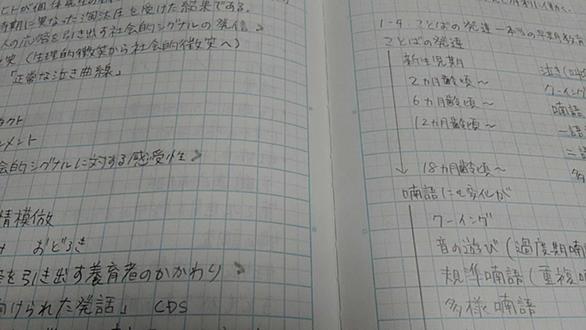 ヒトが個体発生の
時期に異なった淘汰圧を受けた結果である。
人の応答を引き出す社会的シグナルの発信
笑（生理的微笑から社会的微笑へ）
「正常な泣き曲線」
タクト
メント
会的シグナルに対する感受性
情模倣
おどろき
を引き出す養育者のかかわり
向けられた発話」 CDS
1-4 ことばの発達
ことばの発達
新生児期 泣き(叫
2カ月齢頃〜 クーイング
6カ月齢頃〜 喃語
12カ月齢〜 一語
二語
18カ月齢頃〜 多
喃語にも変化が
クーイング
音の遊び（過度期喃
規準喃語（重複
多様喃語